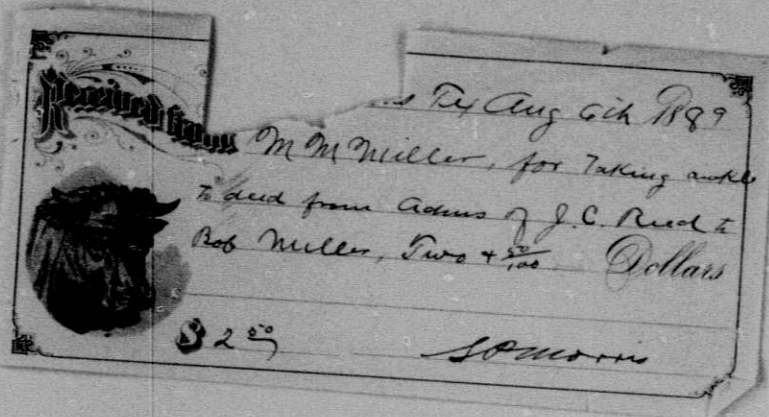 Tex Aug 6th 1889
Received from M M Miller, for Taking
to deed from Admrs of J. C. Reed to
Bob Miller, Two + 50/100 Dollars
$ 2 50
Morris